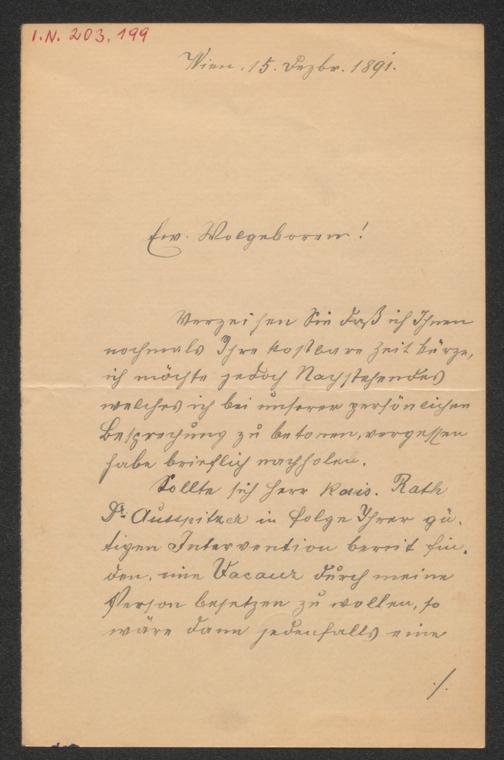 I.N. 203.199
Wien, 15. Dezbr. 1891.
Euv. Wolgeboren!
Verzeihen Sie daß ich Ihnen
nochmals Ihre kostbare Zeit kürze,
ich möchte jedoch Nachstehendes
welches ich bei unserer persönlichen
Besprechung zu betonen, vergessen
habe brieflich nachholen.
Sollte sich Herr Kais. Rath
Dr. Ausspitzer in folge Ihrer gü-
tigen Intervention bereit fin-
den, eine Vacanz durch meine
Person besetzen zu wollen, so
wäre dann jedenfalls eine
./.